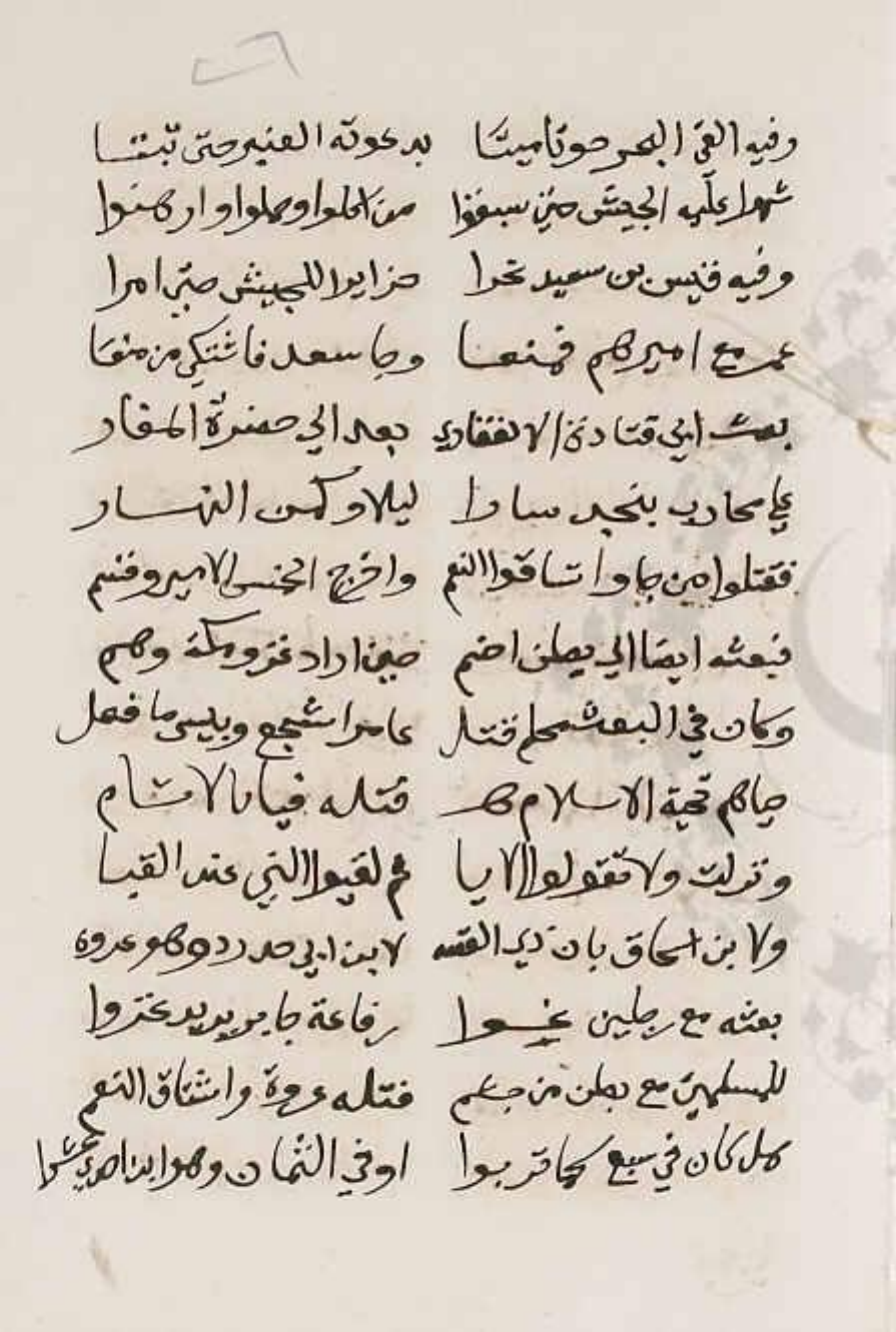 وفيه القى البحر حوتا ميتا بدعوته العنبر حتى ثبتا
شهرا عليه الجيش حتى سمنوا من اكلوا وحملوا وادهنوا
وفيه قيس بن سعيد نحرا جزايرا للجيش حتى امرا
عمر مع اميرهم فمنعا وجا سعد فاشتكى من منعا
بعث ابي قتادة الانصاري بعد الى حضرة
على محارب بنجد سارا ليلا وكمن النهار
فقتلوا من جاوا تساقوا النعم واخرج الخمس الامير وقسم
فبعثه ايضا الى بطن اضم حين اراد غزو مكة وهم
وكان في البعث محلم قتل عامر اشجع وبيس ما فعل
حياهم تحية الاسلام قتله فيا بالاثام
ونزلت ولا تقولوا الايا ثم لقيوا النبي عند القيا
ولابن اسحاق بان ذي القصه لابن ابي حدرد وهو عروه
بعثه مع رجلين رفاعة جا يريد غزوا
للمسلمين مع بطن من جشم قتله عروة واشتاق النعم
هل كان في سبع او في الثمان وهو